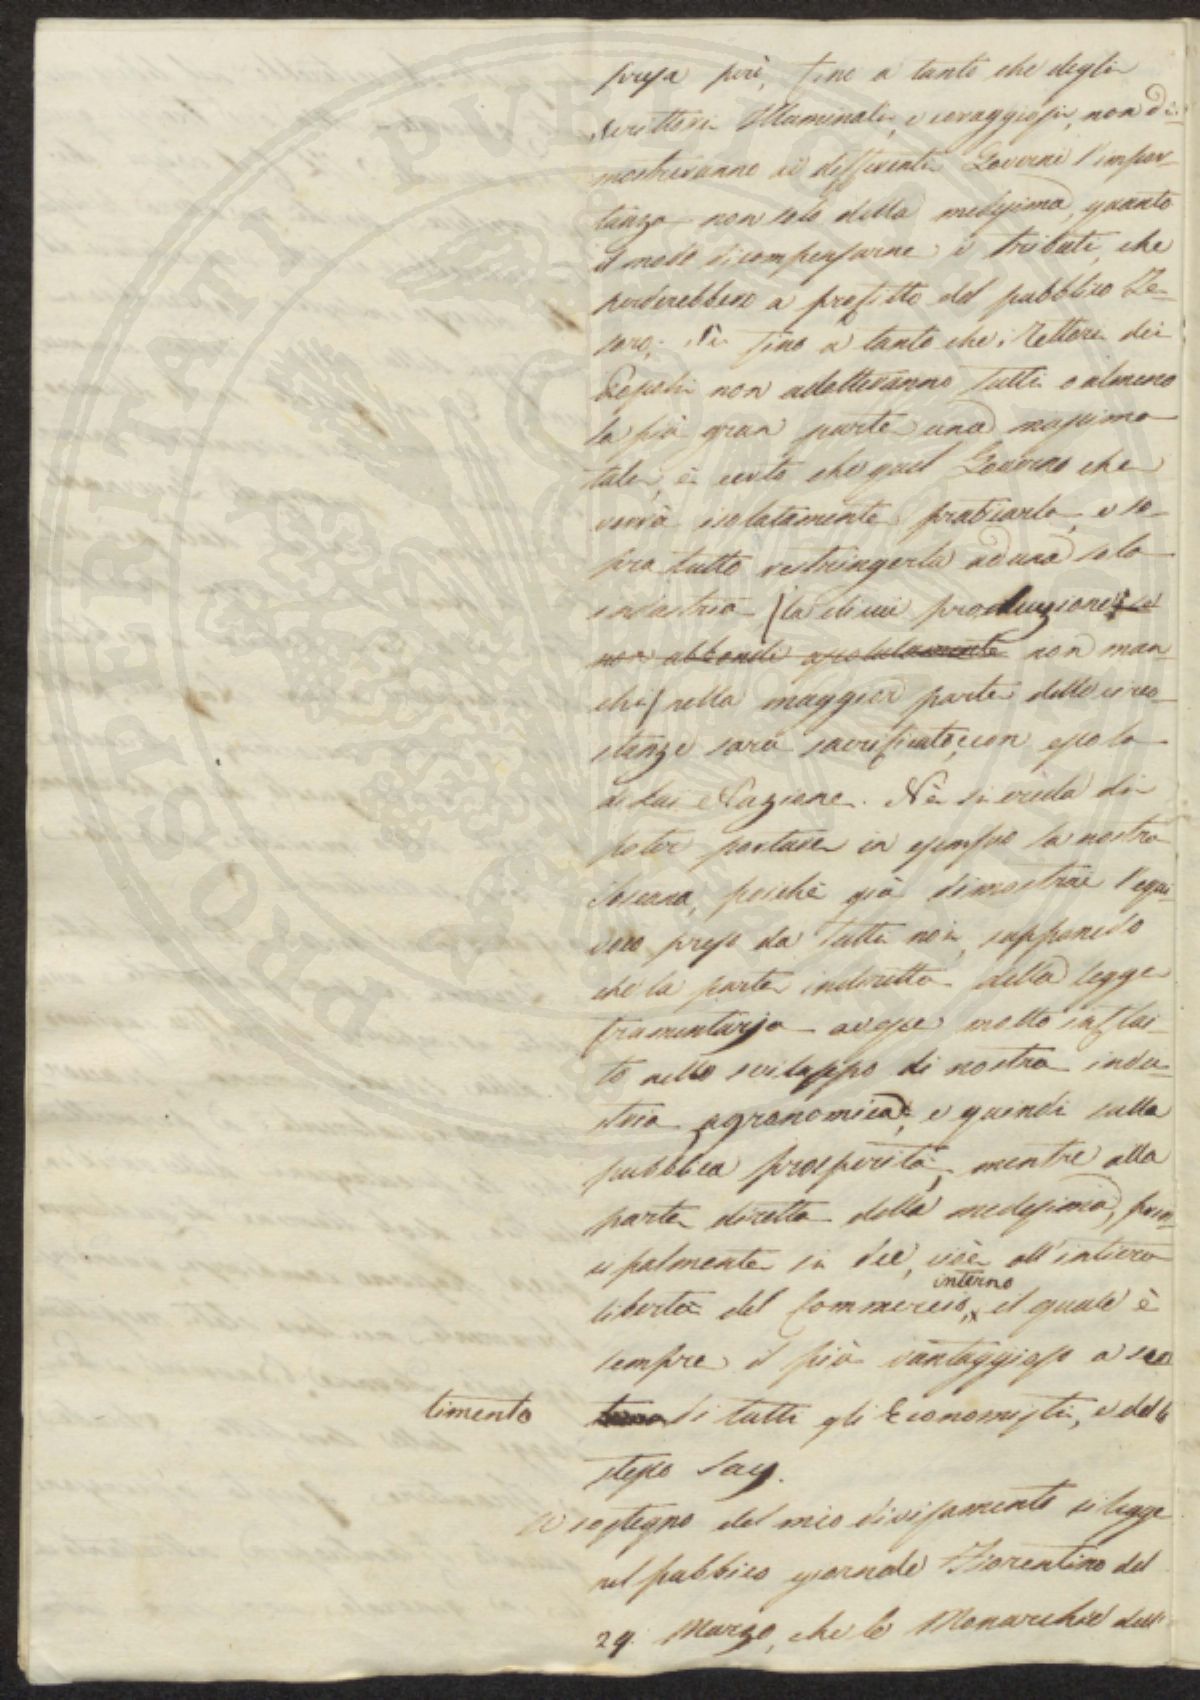 presa però, fino a tanto che degli
scrittori illuminati, e coraggiosi, non di-
mostreranno ai differenti Governi l'impor-
tanza non solo della medesima, quanto
il modo di compensarne i tributi, che
perderebbero a profitto del pubblico Te-
soro; Nè fino a tanto che i Rettori dei
Popoli non adotteranno tutti o almeno
la più gran parte una massima
tale, è certo che quel Governo che
vorrà isolatamente praticarla, e so-
pra tutto restringerla ad una sola
industria (la di cui produzione se
non abbondi assolutamente non man-
chi) nella maggior parte delle circo-
stanze sarà sacrificato, e con esso la
di Lui Nazione. Nè si creda di
poter portare in esempio la nostra
Toscana, poichè già dimostrai l'equi-
voco preso da tutti noi, supponendo
che la parte indiretta della legge
frumentaria avesse molto influi-
to nello sviluppo di nostra indu-
stria agronomica, e quindi sulla
pubblica prosperità, mentre alla
parte diretta della medesima, prin-
cipalmente si deè, cioè all'intiera
interno
libertà del Commercio, il quale è
sempre il più vantaggioso a sen
timento di tutti gli Economisti, e dello
stesso Say.
A sostegno del mio divisamento si legge
nel pubblico giornale Fiorentino del
29. Marzo, che le Monarchie dell'